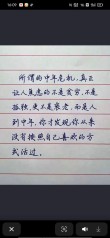 16:09
所谓的中年危机，真正
让人焦虑的不是贫穷，不是
孤独，更不是衰老，而是人
到中年，你才发现你从来
没有按照自己喜欢的方
式活过。